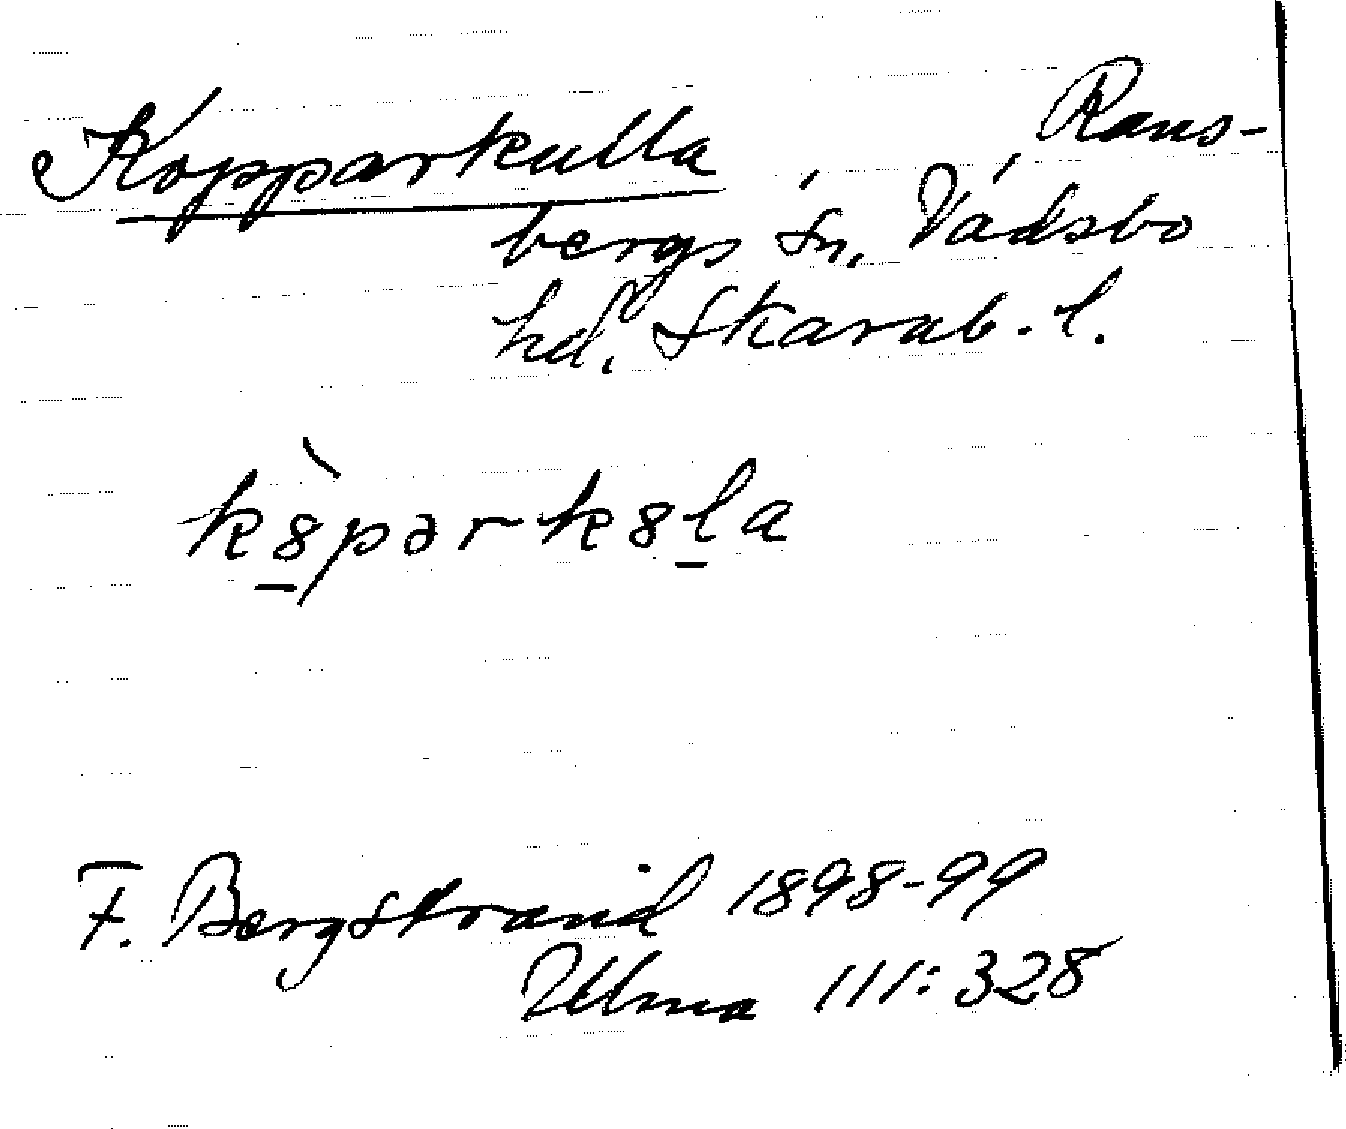 Kopparkulla Rans-
bergs sn, Vadsbo
hd. Skarab. l.
kò̱pərk8l̲a
F. Bergstrand 1898-99
Ulma 111:328